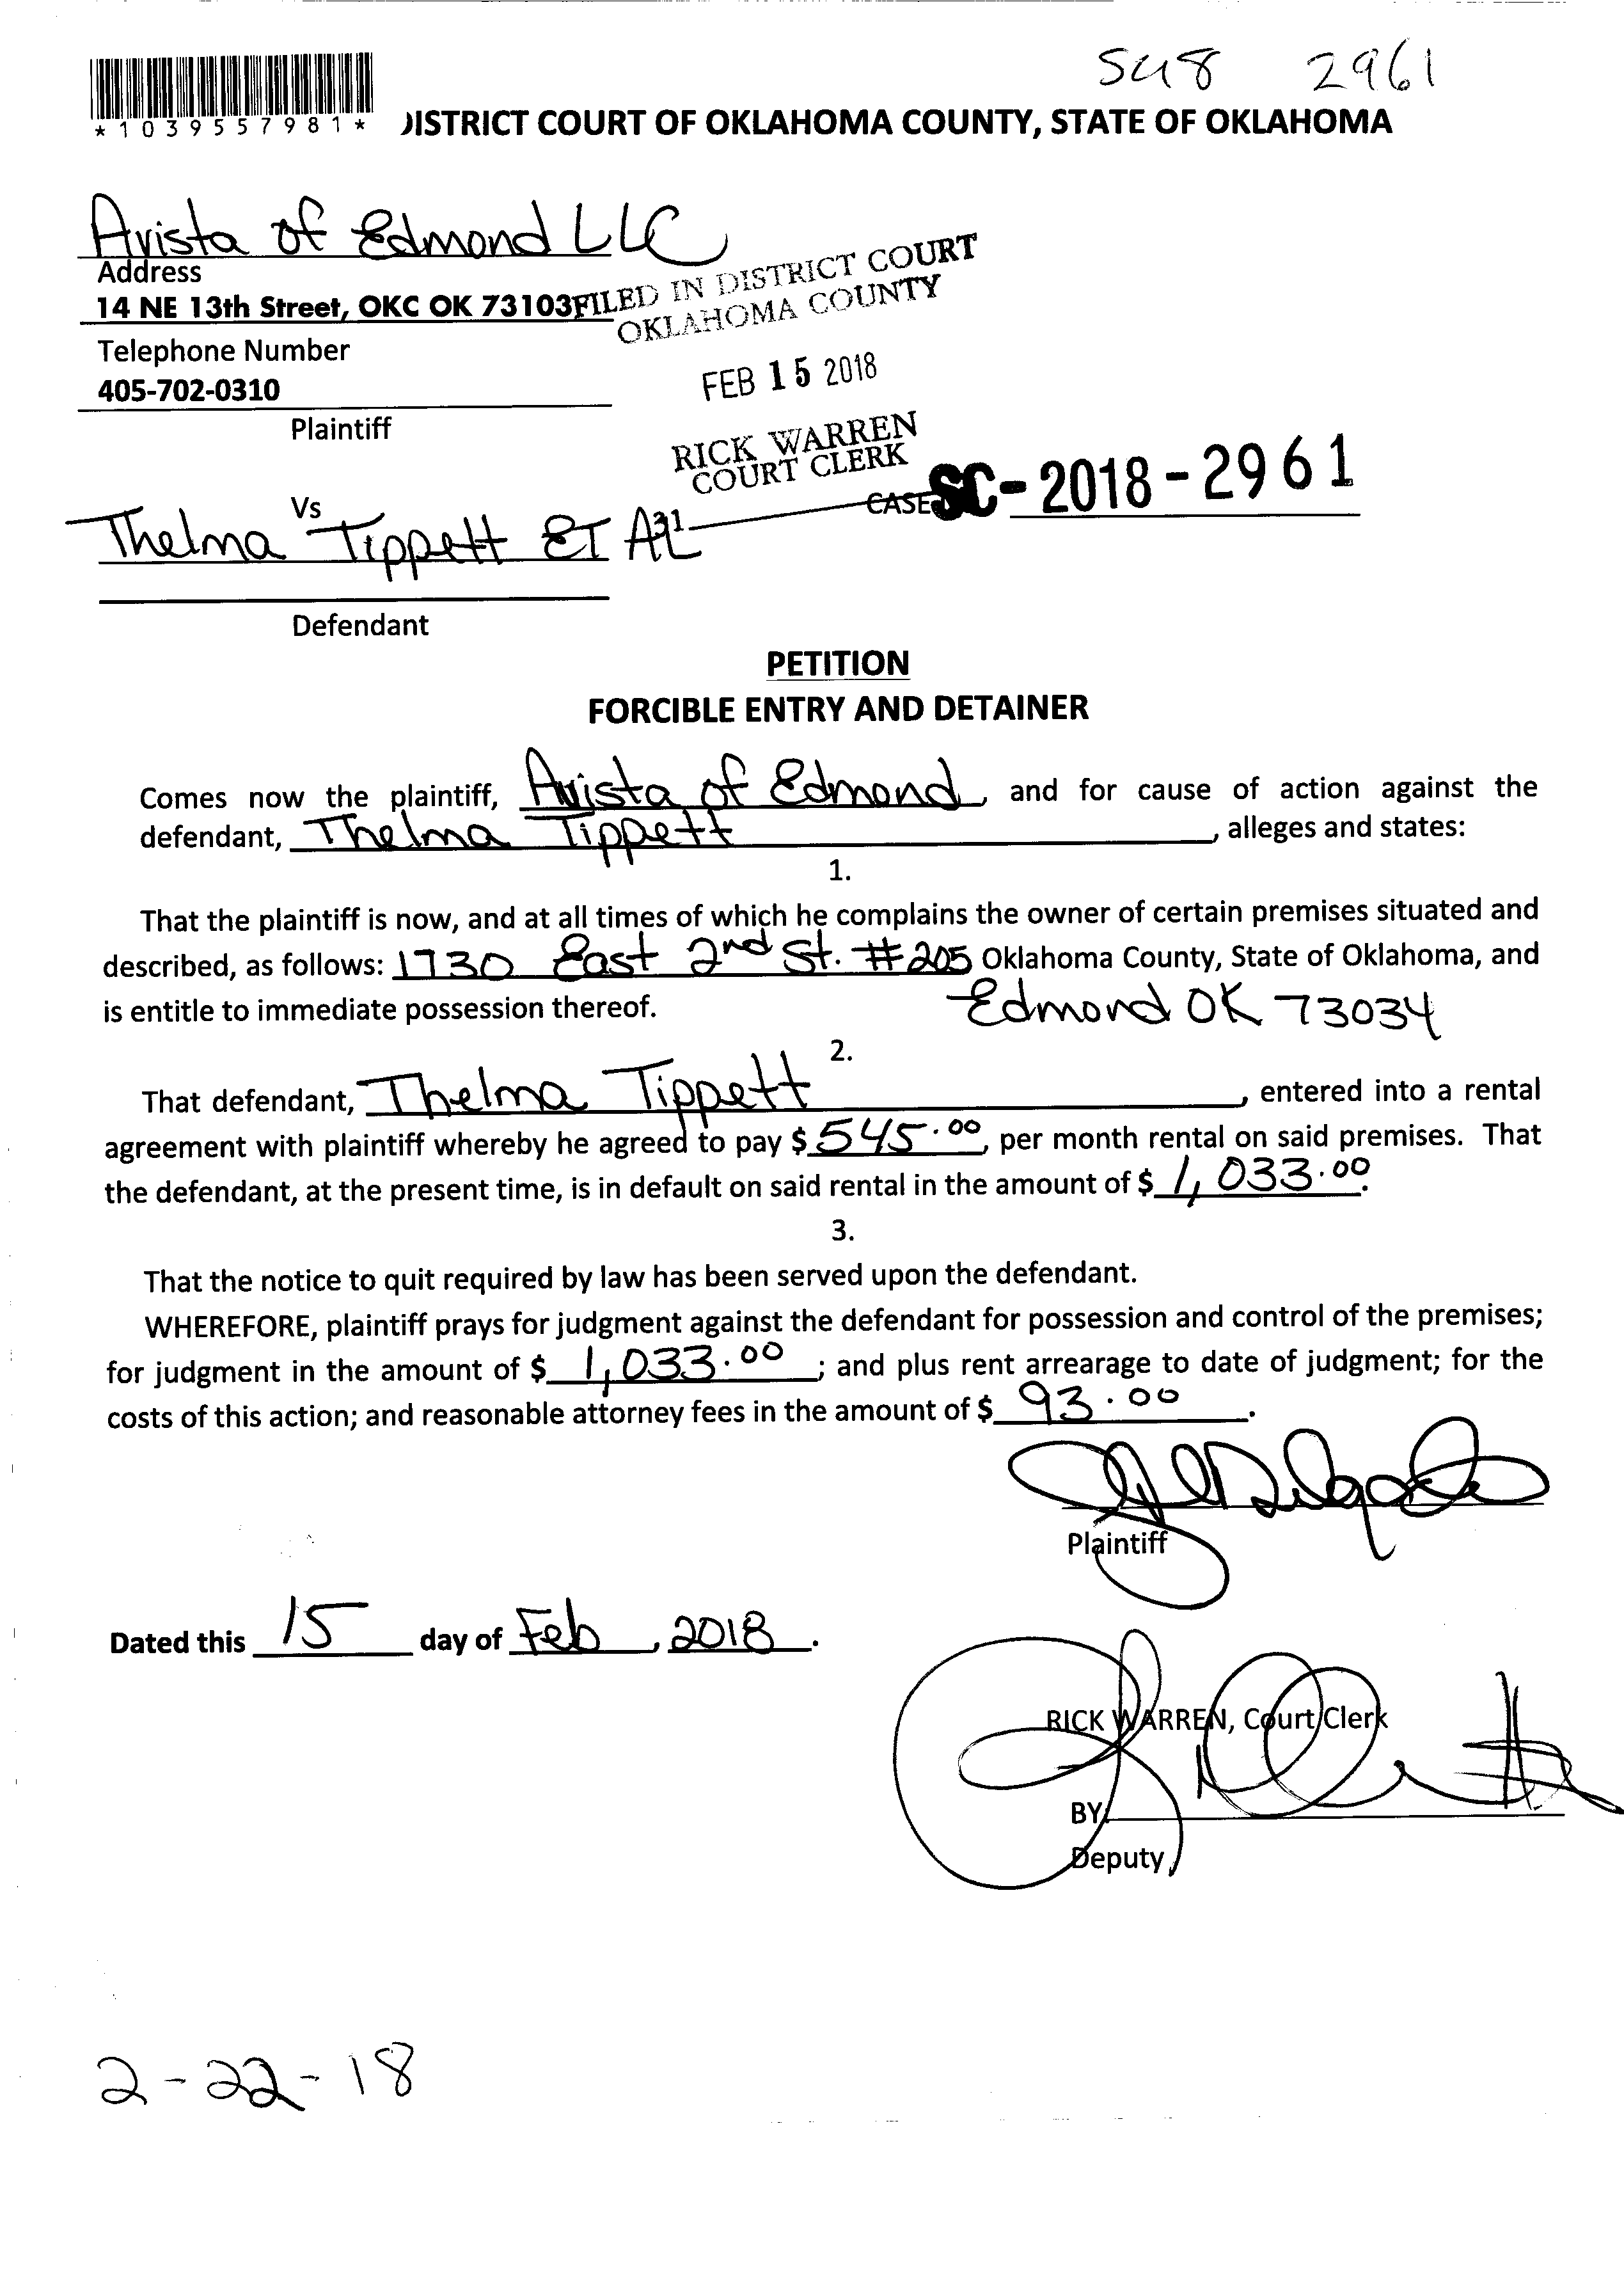 SC18 2961
*1039557981*
DISTRICT COURT OF OKLAHOMA COUNTY, STATE OF OKLAHOMA
Avista of Edmond LLC
Address
14 NE 13th Street, OKC OK 73103
FILED IN DISTRICT COURT
OKLAHOMA COUNTY
Telephone Number
405-702-0310
FEB 15 2018
Plaintiff
RICK WARREN
COURT CLERK
Vs
CASE SC-2018-2961
31
Thelma Tippett ET AL
Defendant
PETITION
FORCIBLE ENTRY AND DETAINER
Comes now the plaintiff, Avista of Edmond, and for cause of action against the
defendant, Thelma Tippett, alleges and states:
1.
That the plaintiff is now, and at all times of which he complains the owner of certain premises situated and
described, as follows: 1730 East 2nd St. #205 Oklahoma County, State of Oklahoma, and
is entitle to immediate possession thereof. Edmond OK 73034
2.
That defendant, Thelma Tippett, entered into a rental
agreement with plaintiff whereby he agreed to pay $ 545.00, per month rental on said premises. That
the defendant, at the present time, is in default on said rental in the amount of $ 1,033.00.
3.
That the notice to quit required by law has been served upon the defendant.
WHEREFORE, plaintiff prays for judgment against the defendant for possession and control of the premises;
for judgment in the amount of $ 1,033.00; and plus rent arrearage to date of judgment; for the
costs of this action; and reasonable attorney fees in the amount of $ 93.00.
Plaintiff
Dated this 15 day of Feb, 2018.
RICK WARREN, Court Clerk
BY:
Deputy
2-22-18